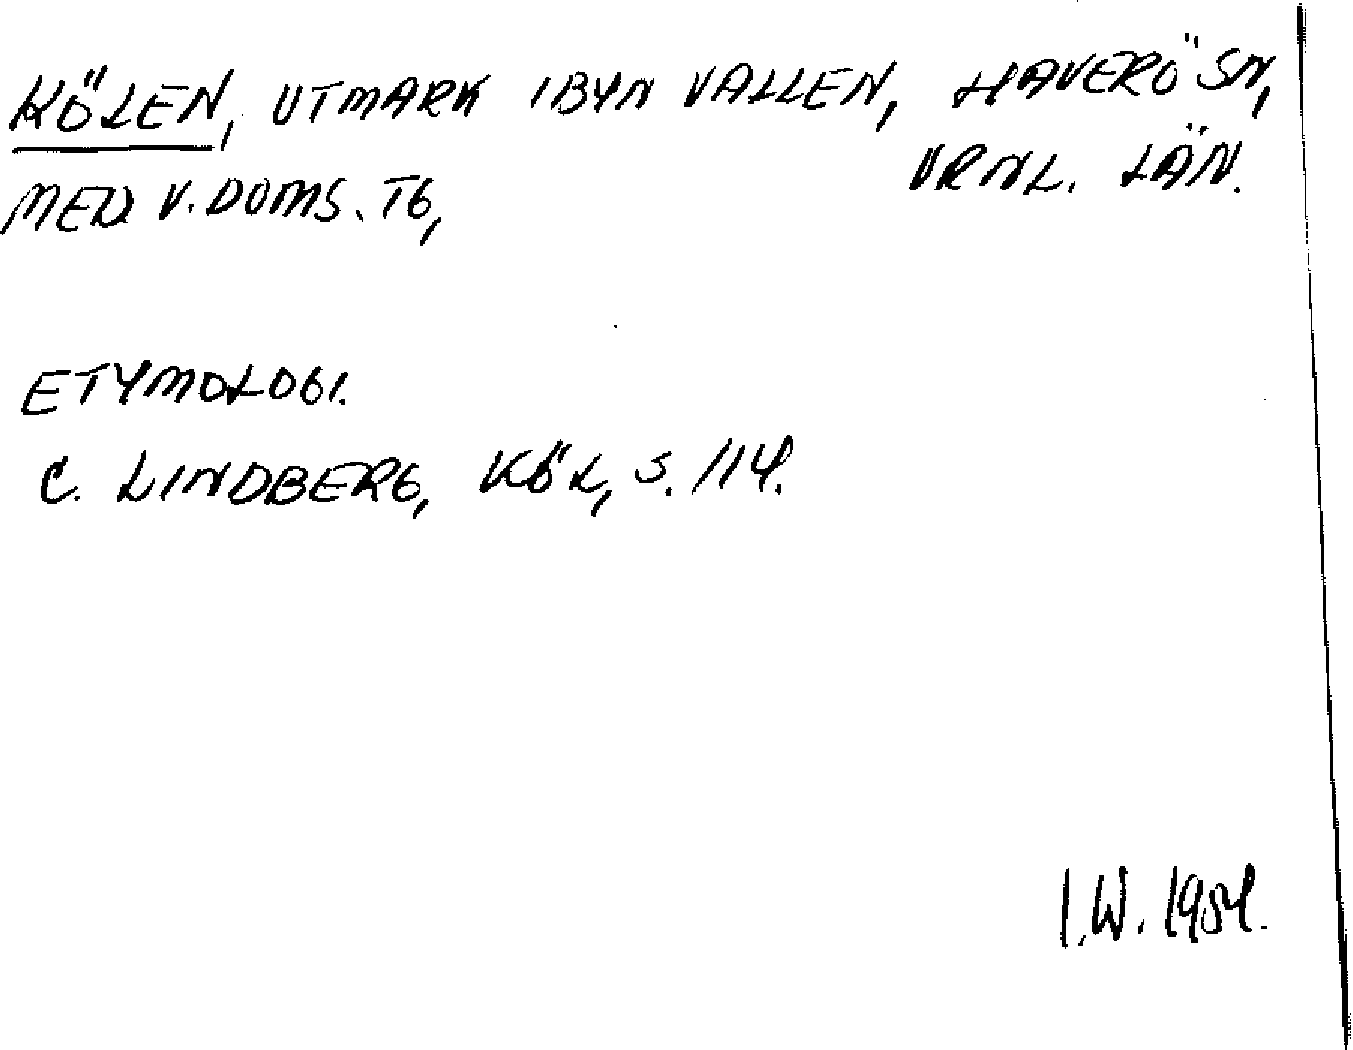 KÖLEN, UTMARK I BYN VALLEN, HAVERÖ SN,
VRNL. LÄN.
MED V. DOMS. TG,
ETYMOLOGI.
C. LINDBERG, KÖL, S. 114.
I.W. 1954.